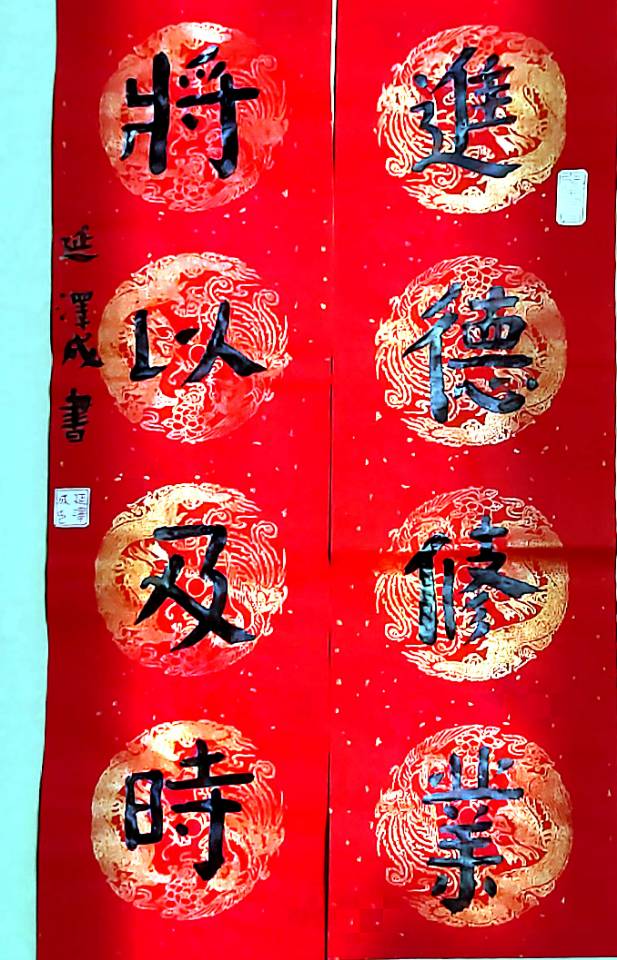 進德修業
將以及時
延澤成書